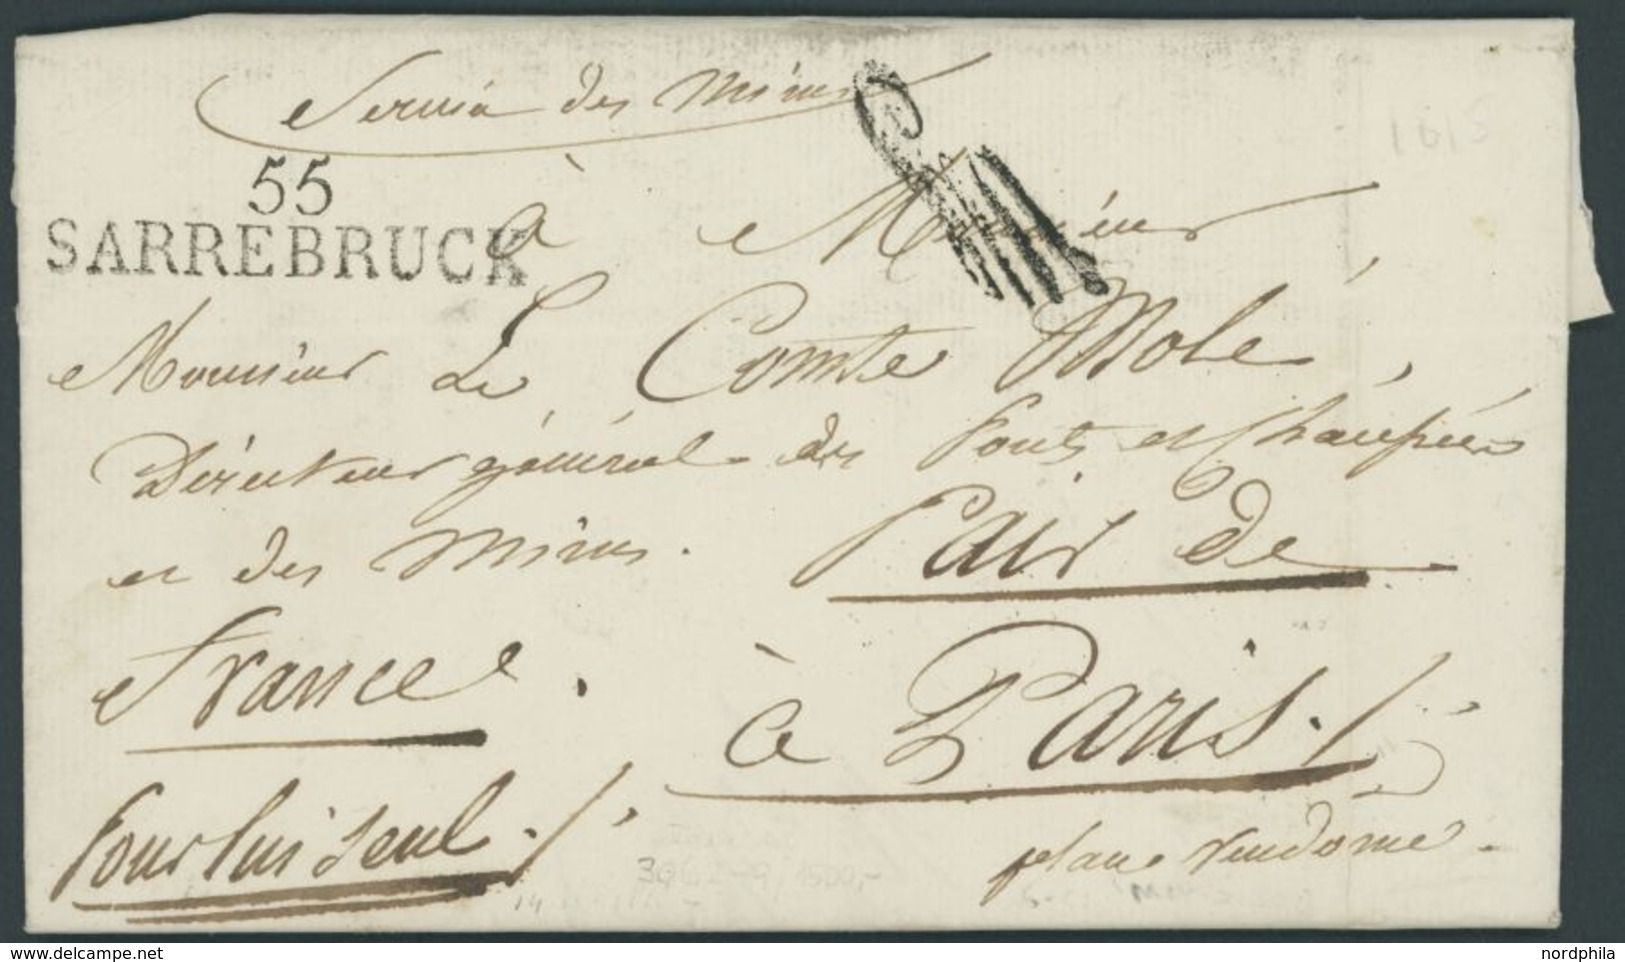 Service des Mines
55
SARREBRUCK
à Monsieur
Monsieur Le Comte Molé,
Directeur général des Ponts et Chaussées
et des Mines. Pair de
France.
à Paris./.
Pour lui seul./.
place Vendôme.
1815
1500,-
www.delcampe.net
nordphila